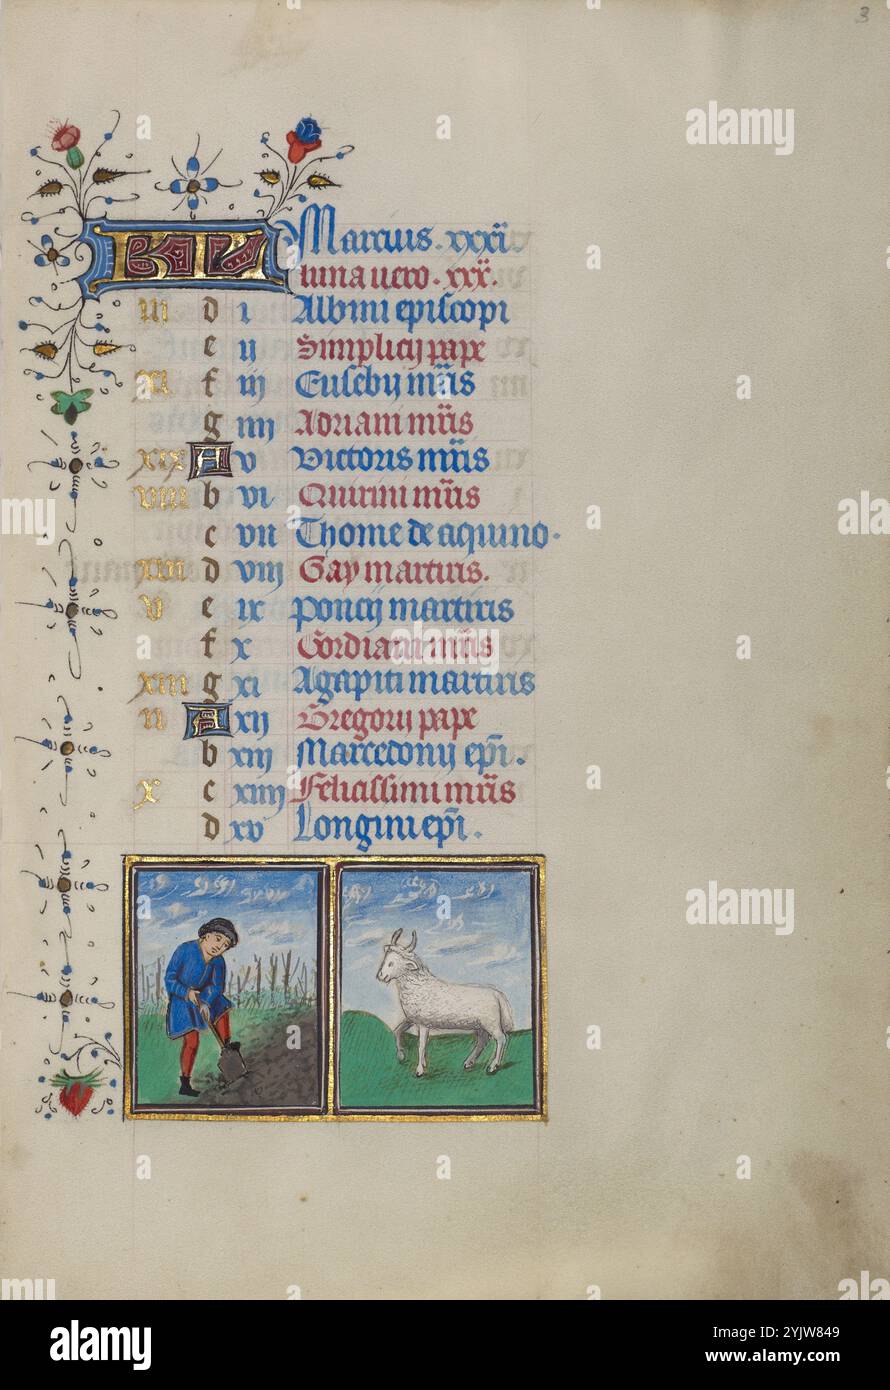 3
KL Marcius . xxxi
luna vero . xxx.
iii d i Albini episcopi
e ii Simplicij pape
xi f iij Eusebij mr̄is
g iiij Adriani mr̄is
xix A v Victoris mr̄is
viii b vi Quirini mr̄is
c vii Thome de aquino .
xvi d viij Gay martiris.
v e ix poncij martiris
f x Gordiani mr̄is
xiii g xi Agapiti martiris
ii A xij Gregorij pape
b xiij Marcedonij ep̄i.
x c xiiij Felicissimi mr̄is
d xv Longini ep̄i.
alamy
Image ID: 2YJW849
www.alamy.com